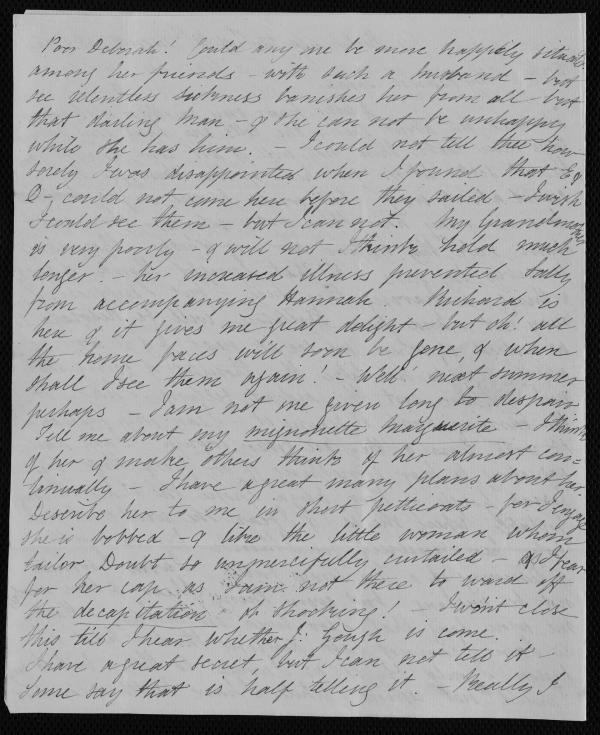 Poor Deborah! Could any one be more happily situated
among her friends - with such a husband - but
see relentless sickness banishes her from all - but
that darling man - & she can not be unhappy
while she has him. - I could not tell thee how
sorely I was disappointed when I found that E &
D - could not come here before they sailed - I wish
I could see them - but I can not. My Grandmother
is very poorly - & will not I think hold much
longer. - her increased illness prevented Sally
from accompanying Hannah. Richard is
here & it gives me great delight - but oh! all
the home faces will soon be gone, & when
shall I see them again! - Well! next summer
perhaps - I am not one given long to despair
Tell me about my mignonette marguerite - I think
of her & make others think of her almost con=
tinually - I have a great many plans about her.
Describe her to me in short petticoats - for I engage
she is bobbed - & like the little woman whom
tailor Doubt so unmercifully curtailed - & I fear
for her cap as I am not there to ward off
the decapitation oh shocking! - I won't close
this till I hear whether J: Gough is come.
I have a great secret, but I can not tell it -
some say that is half telling it. - Really I